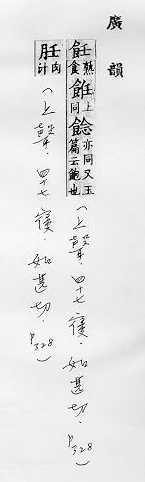 廣韻
飪熟食餁上同䭃亦同又玉篇云飽也（上聲．四十七寑．如甚切．P328）
肚肉汁（上聲．四十七寑．如甚切．P328）